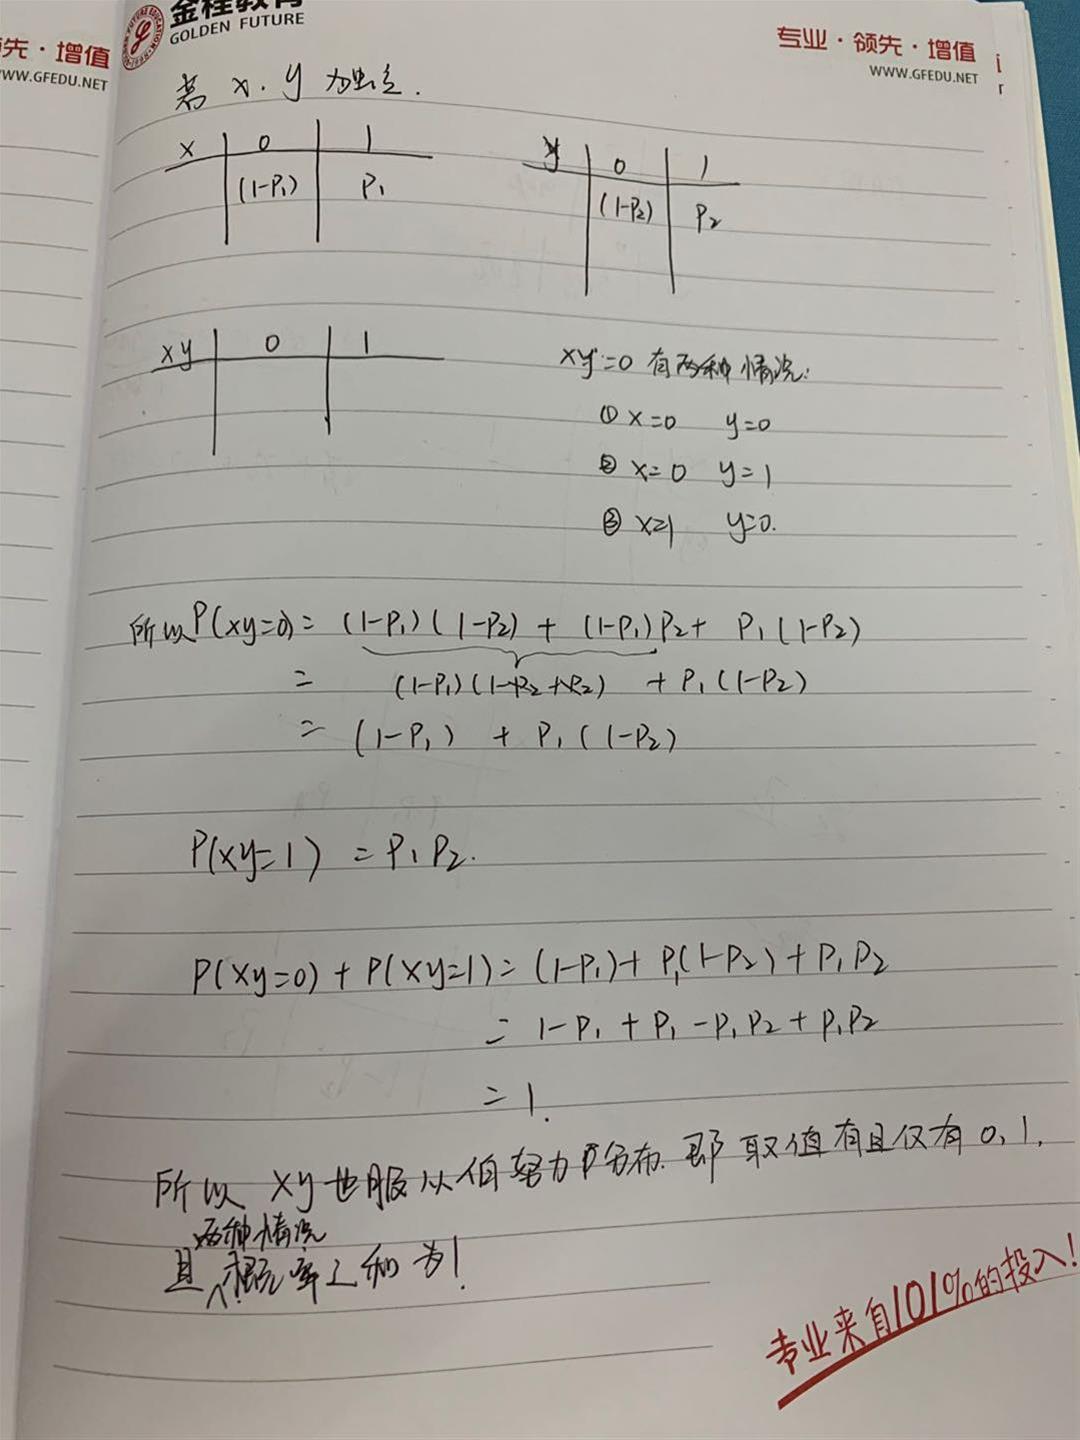 先·增值
WWW.GFEDU.NET
金程教育
GOLDEN FUTURE
专业·领先·增值
WWW.GFEDU.NET
若 x. y 为独立.
x 0 1
(1-P₁) P₁
y 0 1
(1-P₂) P₂
xy 0 1
xy=0 有两种情况:
① x=0 y=0
② x=0 y=1
③ x=1 y=0.
所以P(xy=0)= (1-P₁)(1-P₂) + (1-P₁)P₂+ P₁(1-P₂)
= (1-P₁)(1-P₂+P₂) + P₁(1-P₂)
= (1-P₁) + P₁(1-P₂)
P(xy=1) = P₁P₂.
P(xy=0) + P(xy=1)= (1-P₁)+ P₁(1-P₂)+P₁P₂
= 1-P₁+P₁-P₁P₂+P₁P₂
= 1.
所以 xy也服从伯努力分布. 即 取值有且仅有 0, 1.
两种情况
且概率之和为1
专业来自101%的投入!